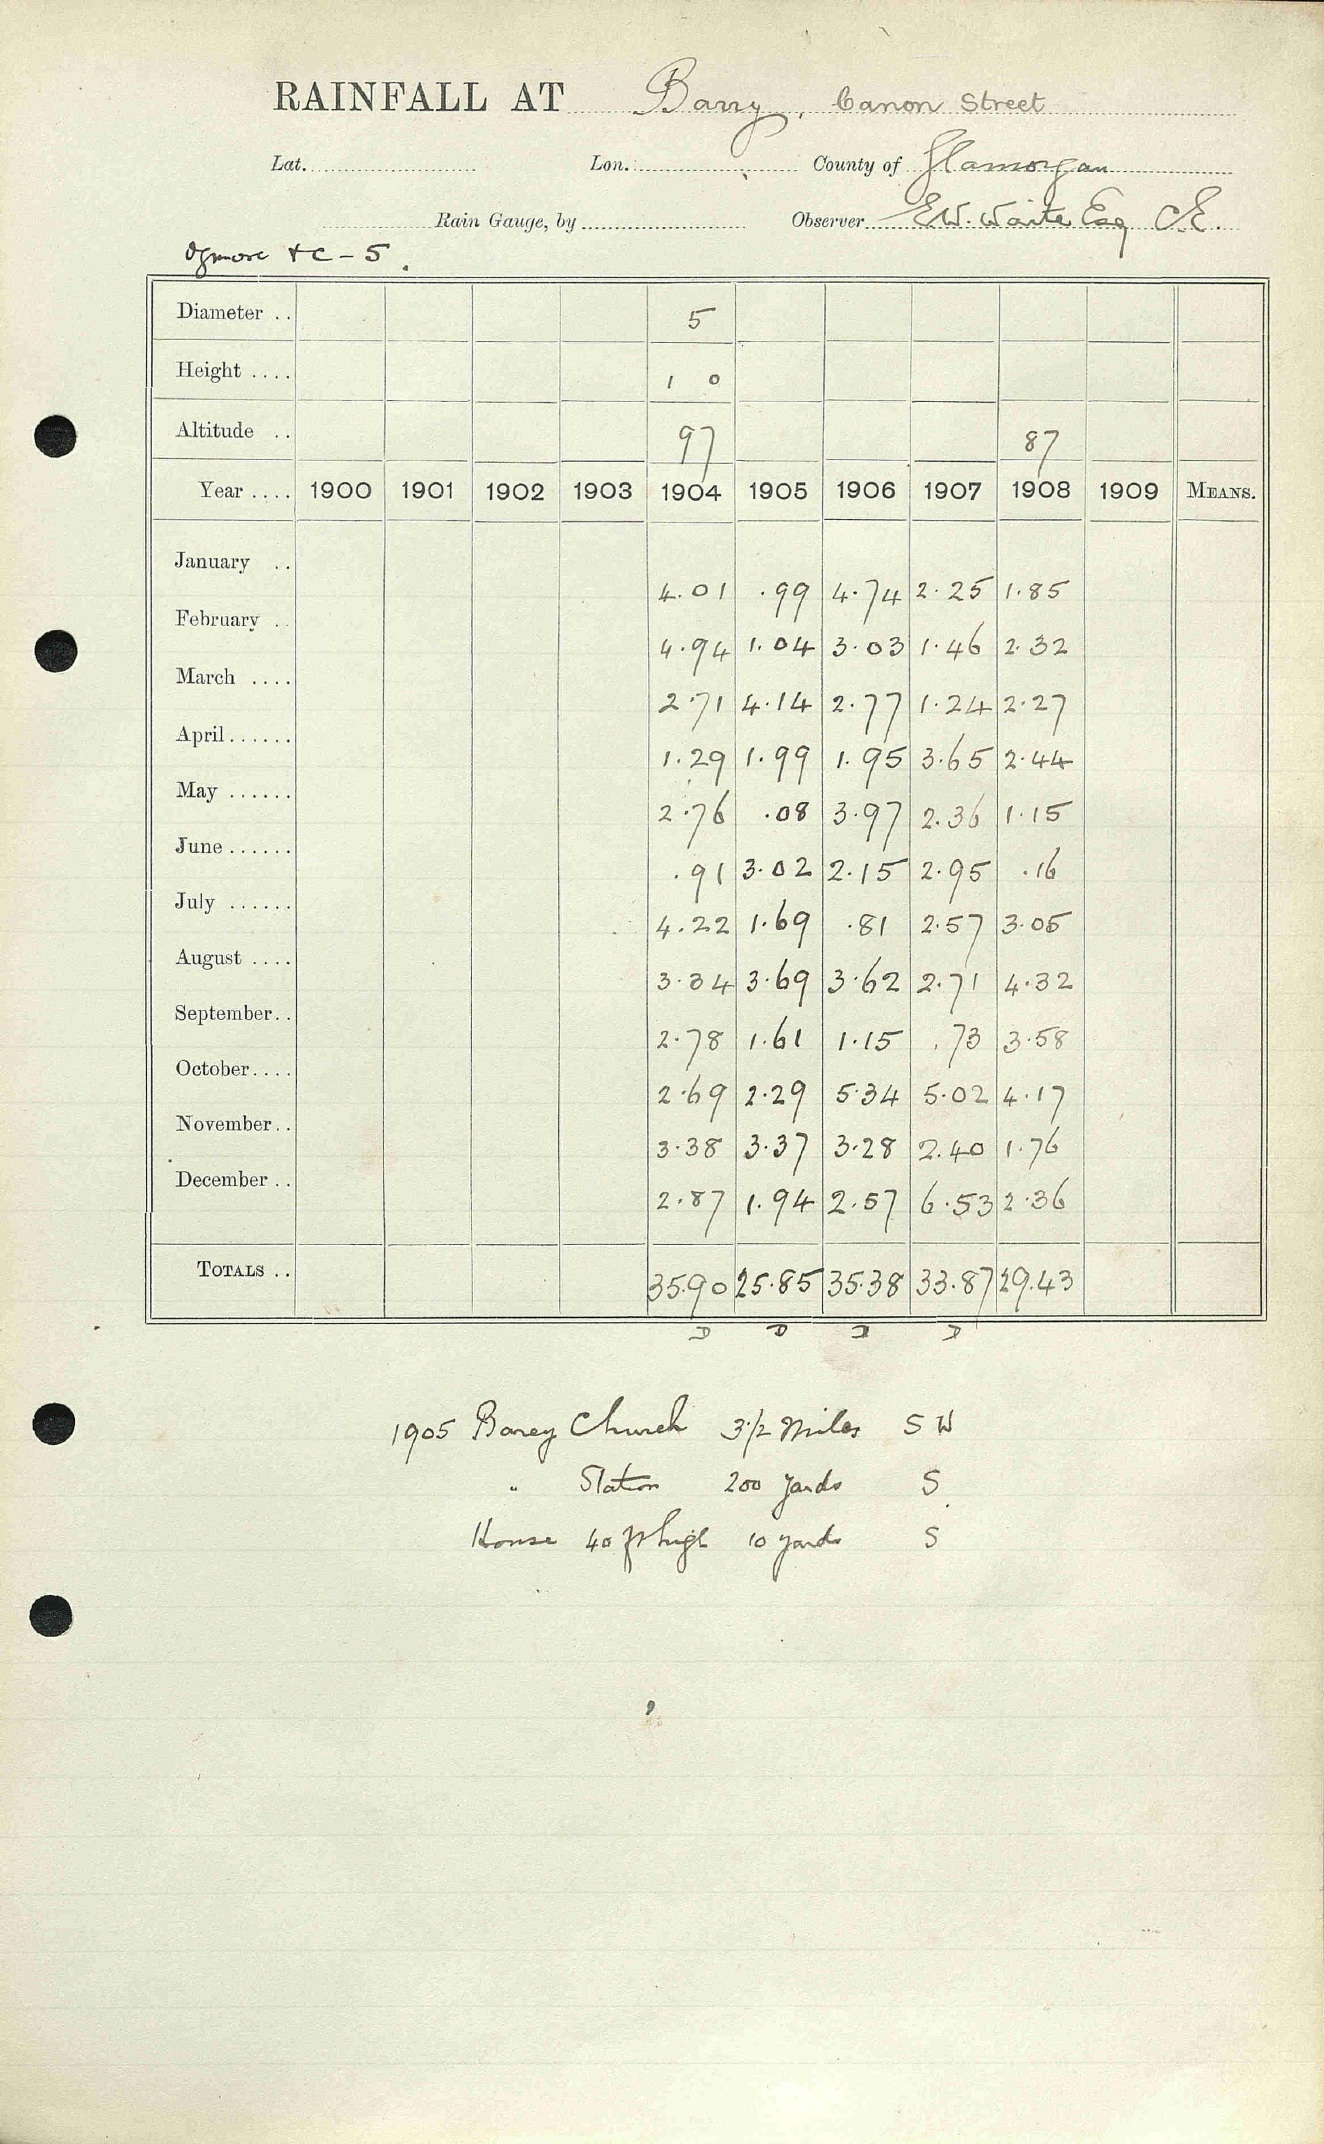 RAINFALL AT Barry, Canon Street
Lat. Lon. County of Glamorgan
Rain Gauge, by Observer E.W. Waite Esq C.E.
Ogmore &c - 5.
Diameter .. 5
Height .... 1 0
Altitude .. 97 87
Year .... 1900 1901 1902 1903 1904 1905 1906 1907 1908 1909 MEANS.
January .. 4.01 .99 4.74 2.25 1.85
February .. 4.94 1.04 3.03 1.46 2.32
March .... 2.71 4.14 2.77 1.24 2.27
April...... 1.29 1.99 1.95 3.65 2.44
May ...... 2.76 .08 3.97 2.36 1.15
June...... .91 3.02 2.15 2.95 .16
July ...... 4.22 1.69 .81 2.57 3.05
August .... 3.34 3.69 3.62 2.71 4.32
September.. 2.78 1.61 1.15 .73 3.58
October.... 2.69 2.29 5.34 5.02 4.17
November.. 3.38 3.37 3.28 2.40 1.76
December .. 2.87 1.94 2.57 6.53 2.36
TOTALS .. 35.90 25.85 35.38 33.87 29.43
D D D D
1905 Barry Church 3 1/2 Miles S W
" Station 200 yards S
House 40 ft high 10 yards S